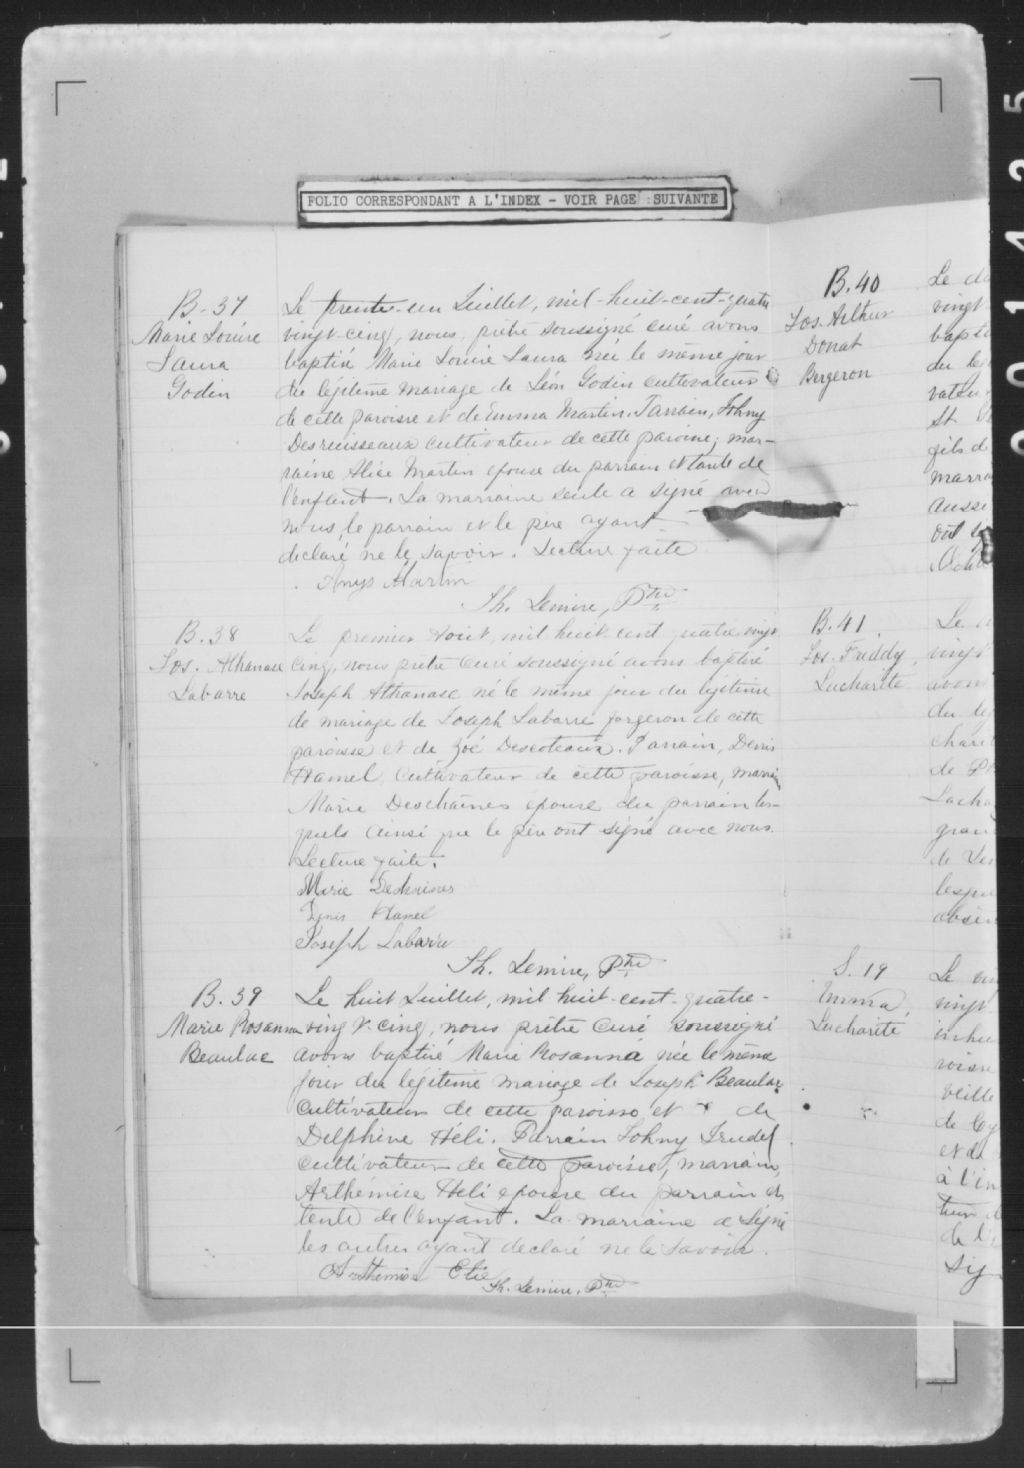 FOLIO CORRESPONDANT A L'INDEX - VOIR PAGE SUIVANTE
B-37
Marie Louise
Laura
Godin
Le trente-un Juillet, mil-huit-cent-quatre
vingt-cinq, nous, prêtre soussigné curé avons
baptisé Marie Louise Laura née le même jour
du légitime mariage de Léon Godin cultivateur
de cette paroisse et de Emma Martin. Parrain, Johny
Desruisseaux cultivateur de cette paroisse, mar-
raine Alice Martin epouse du parrain et tante de
l'enfant. La marraine seule a signé avec
nous, le parrain et le père ayant
declaré ne le savoir. Lecture faite
Martin
Th. Lemire, Ptre
B.38
Jos. Athanase
Labarre
Le premier Aout, mil huit cent quatre vingt
cinq, nous prêtre Curé soussigné avons baptisé
Joseph Athanase né le même jour du légitime
de mariage de Joseph Labarre forgeron de cette
paroisse et de Zoé Descoteaux. Parrain, Denis
Hamel, Cultivateur de cette paroisse, marraine
Marie Deschaines epouse du parrain les-
quels ainsi que le père ont signé avec nous.
Lecture faite.
Marie Deshaines
Denis Hamel
Joseph Labarre
Th. Lemire, Ptre
B. 39
Marie Rosanna
Beaulac
Le huit Juillet, mil huit-cent-quatre-
vingt-cinq, nous prêtre Curé soussigné
avons baptisé Marie Rosanna née le même
jour du légitime mariage de Joseph Beaulac
Cultivateur de cette paroisse et de
Delphine Héli. Parrain Johny Trudel
Cultivateur de cette paroisse, marraine
Arthémise Héli epouse du parrain et
tente de l'enfant. La marraine a signé
les autres ayant declaré ne le savoir.
Arthemise Elie
Th. Lemire, Ptre
B.40
Jos. Arthur
Donat
Bergeron
B.41
Jos. Freddy
Lacharité
S. 19
Emma
Lacharité
Le
vingt
du
St
fils d
marra
aussi
Le
vingt
avons
du lé
charit
Lacha
gran
lesque
absen
Le
vingt
inhu
veille
de Cy
et de
à l'in
de l'
Sig